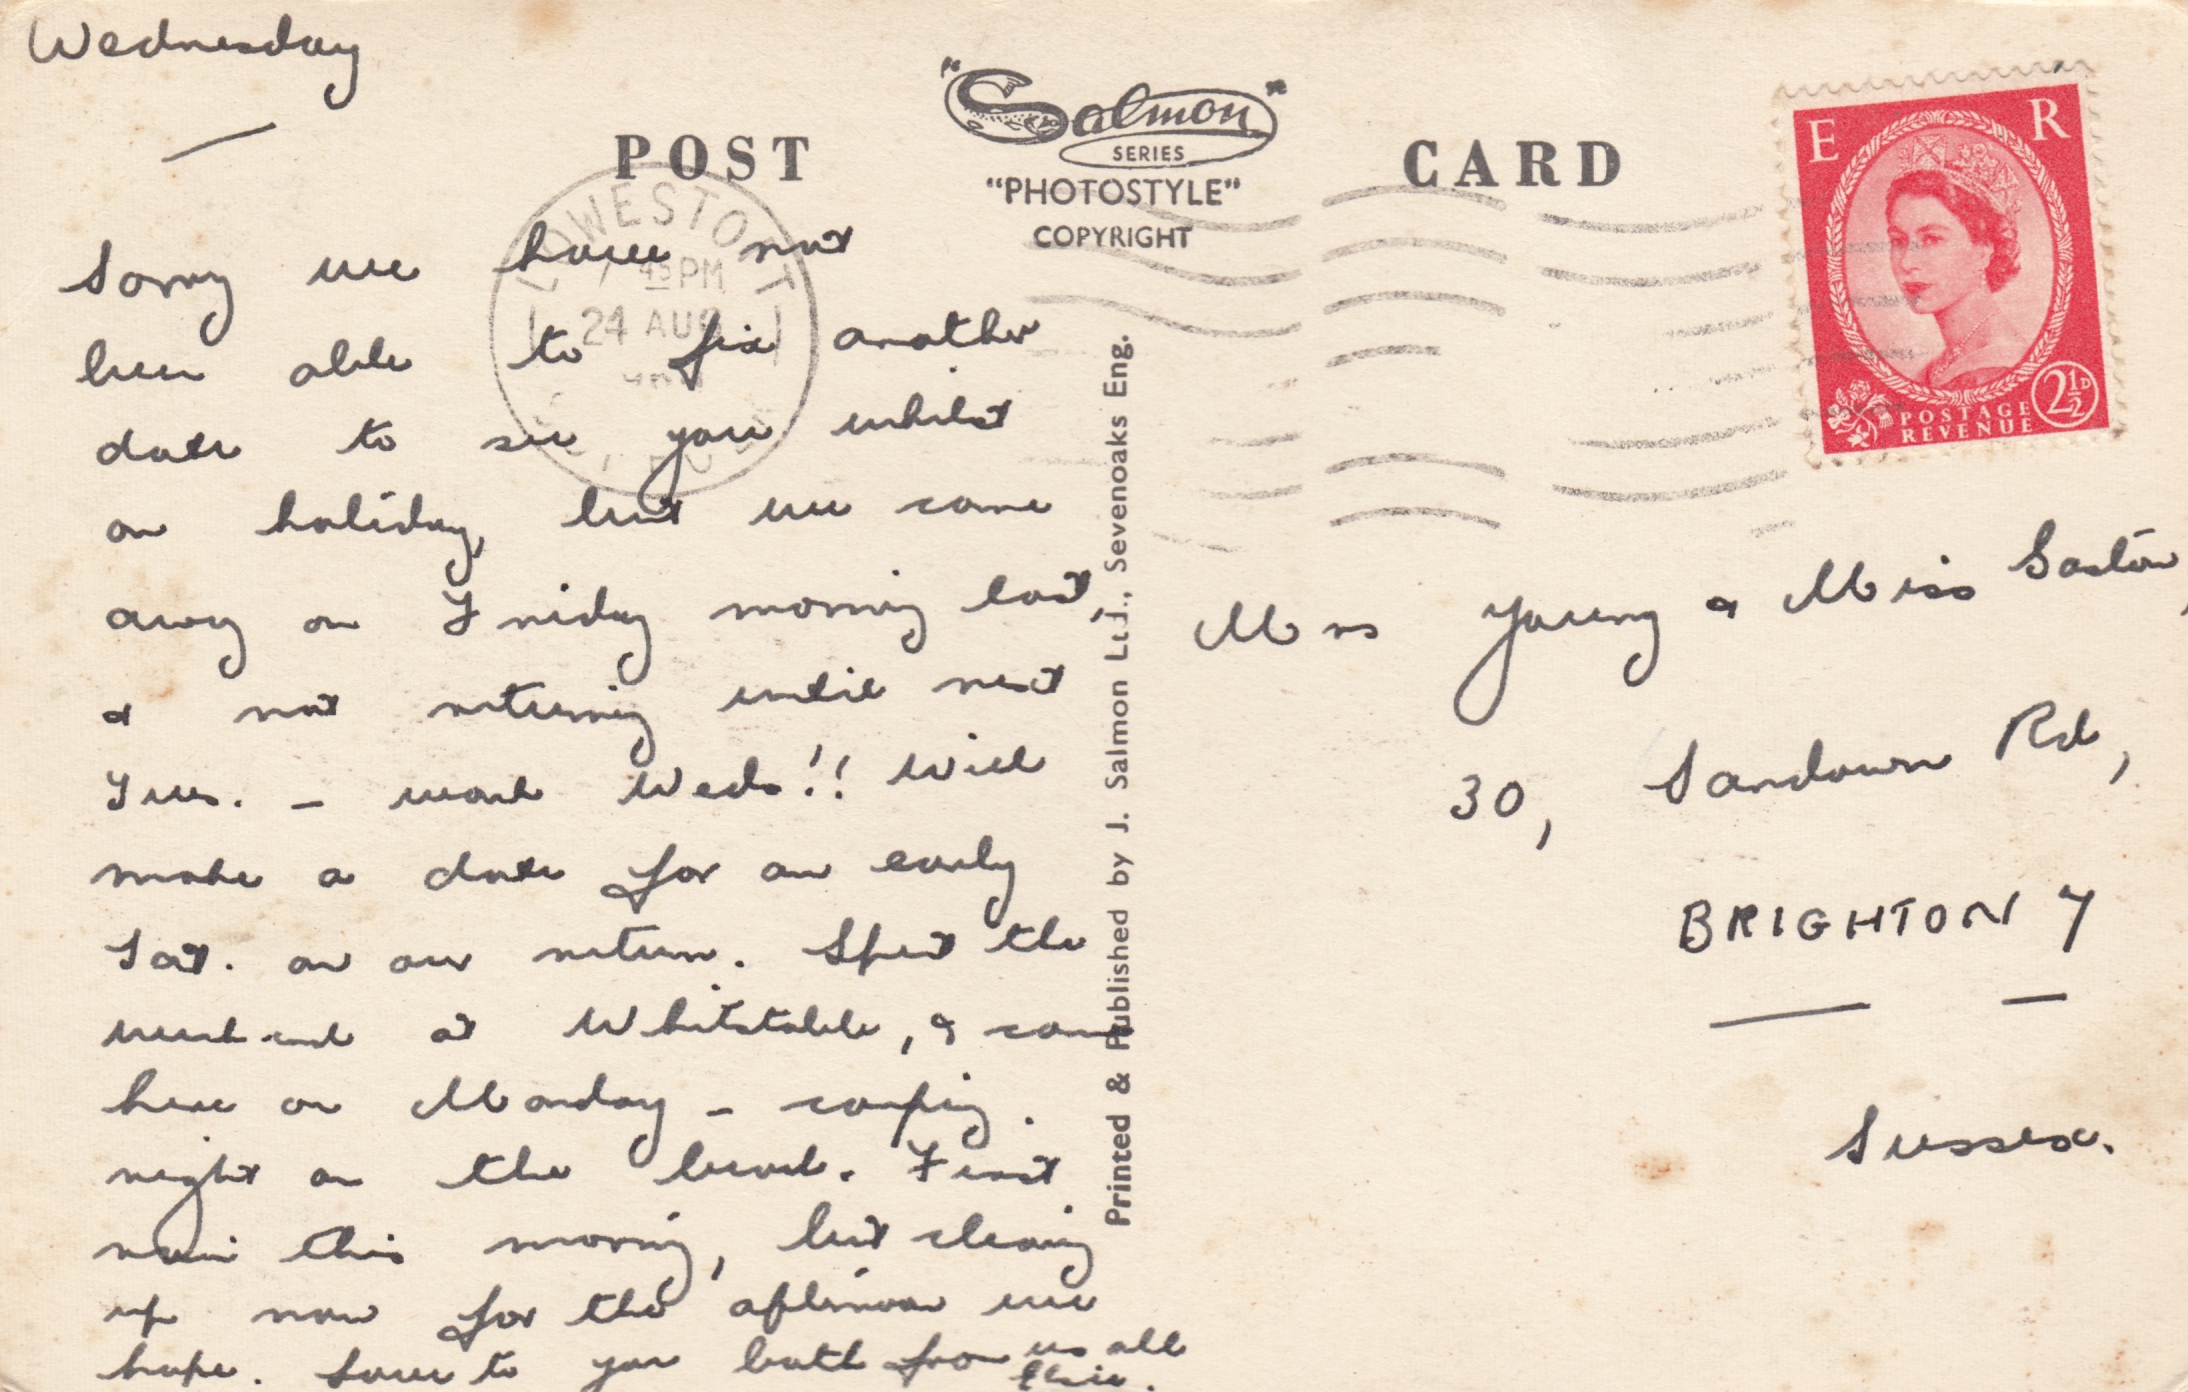 Wednesday
POST
"Salmon"
SERIES
"PHOTOSTYLE"
COPYRIGHT
CARD
E R
POSTAGE
REVENUE
2½D
LOWESTOFT
45 PM
24 AUG
SUFFOLK
Sorry we have not
been able to fix another
date to see you whilst
on holiday, but we came
away on Friday morning last,
& not returning until next
Tues. – work Weds!! Will
make a date for an early
Sat. on our return. Spent the
weekend at Whitstable, & came
here on Monday – camping.
right on the beach. First
rain this morning, but clearing
up now for the afternoon we
hope. Love to you both from us all
Elsie.
Printed & Published by J. Salmon Ltd., Sevenoaks Eng.
Mrs Young & Miss
30, Sandown Rd,
BRIGHTON 7
Sussex.